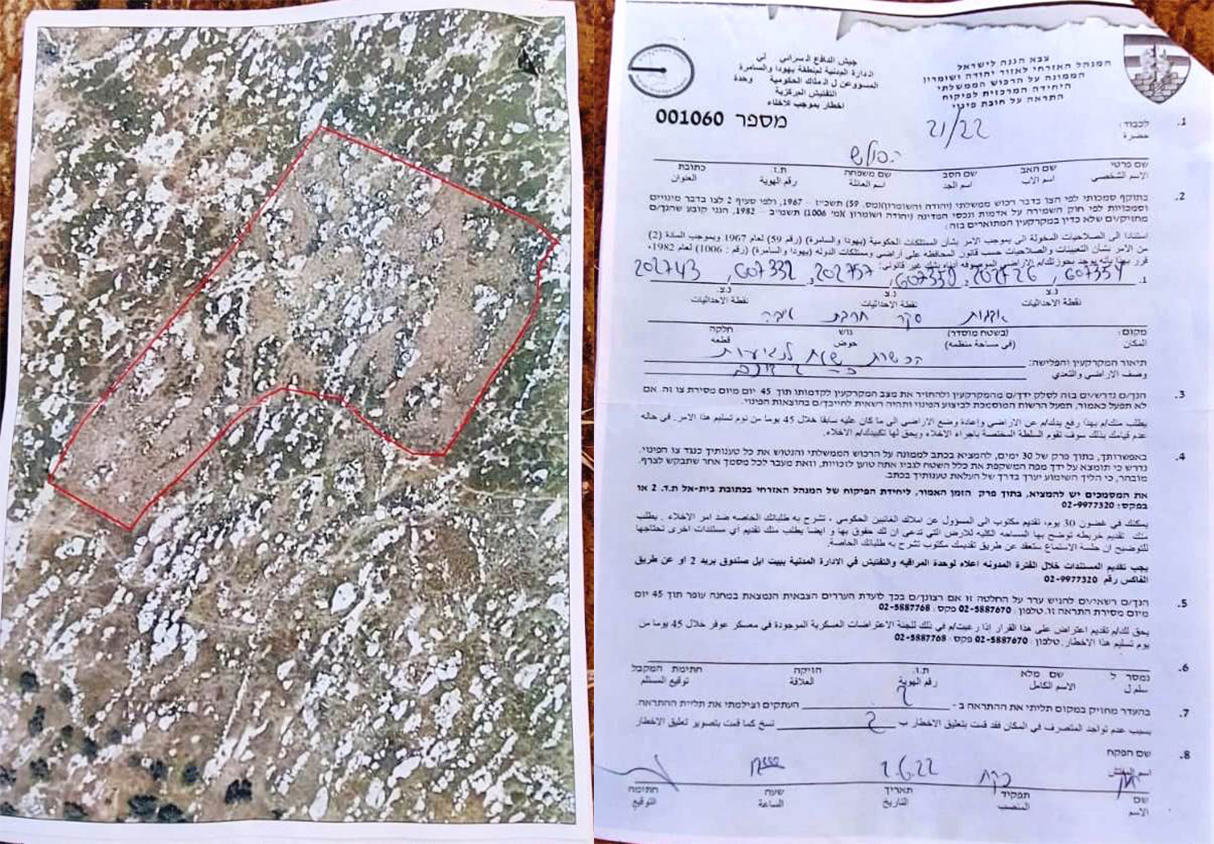 צבא הגנה לישראל
המנהל האזרחי לאזור יהודה ושומרון
הממונה על הרכוש הממשלתי
היחידה המרכזית לפיקוח
התראה על חובת פינוי
جيش الدفاع الاسرائيلي
الادارة المدنية لمنطقة يهودا والسامرة
المسؤول عن الاملاك الحكومية وحدة
التفتيش المركزية
اخطار بموجب للاخلاء
מספר 001060
21/22
1. לכבוד:
حضرة
שם פרטי שם האב שם הסב שם משפחה ת.ז. כתובת
الاسم الشخصي اسم الاب اسم الجد اسم العائلة رقم الهوية العنوان
2. בתוקף סמכותי לפי הצו בדבר רכוש ממשלתי (יהודה והשומרון)(מס. 59) תשכ"ז – 1967, ולפי סעיף 2 לצו בדבר מינויים
וסמכויות לפי חוק השמירה על אדמות ונכסי המדינה (יהודה ושומרון) (מס' 1006) תשמ"ב – 1982, הנני קובע שהנך/ם
מחזיק/ים שלא כדין במקרקעין המתוארים בזה:
استنادا الى الصلاحيات المخولة الي بموجب الامر بشأن الممتلكات الحكومية (يهودا والسامرة) (رقم 59) لعام 1967 وبموجب المادة (2)
من الامر بشأن التعيينات والصلاحيات حسب قانون المحافظه على أراضي وممتلكات الدوله (يهودا والسامرة) (رقم : 1006) لعام 1982،
202743 ,607332 ,607354
1. נ.צ. נ.צ. נ.צ.
نقطة الاحداثيات نقطة الاحداثيات نقطة الاحداثيات
מקום: (בשטח מוסדר) גוש חלקה
المكان (في مساحة منظمه) حوض قطعه
תיאור המקרקעין והפלישה:
وصف الاراضي والتعدي
3. הנך/ם נדרש/ים בזה לסלק ידך/ם מהמקרקעין ולהחזיר את מצב המקרקעין לקדמותו תוך 45 יום מיום מסירת צו זה. אם
לא תפעל כאמור, תפעל הרשות המוסמכת לביצוע הפינוי ותהיה רשאית לחייבך/ם בהוצאות הפינוי.
يطلب منك/م بهذا رفع يدك/م عن الاراضي وإعادة وضع الاراضي الى ما كان عليه سابقا خلال 45 يوما من يوم تسليم هذا الامر. في حاله
عدم قيامك بذلك سوف تقوم السلطة المختصة باجراء الاخلاء ويحق لها تكبيدك/م الاخلاء.
4. באפשרותך, בתוך פרק של 30 ימים, להמציא בכתב לממונה על הרכוש הממשלתי והנטוש את כל טענותיך כנגד צו הפינוי.
נדרש כי תומצא על ידך מפה המשקפת את כלל השטח לגביו אתה טוען לזכויות, וזאת מעבר לכל מסמך אחר שתבקש לצרף.
מובהר, כי הליך השימוע יערך בדרך של העלאת טענותיך בכתב.
את המסמכים יש להמציא, בתוך פרק הזמן האמור, ליחידת הפיקוח של המנהל האזרחי בכתובת בית-אל ת.ד. 2 או
בפקס: 02-9977320
يمكنك في غضون 30 يوم، تقديم مكتوب الى المسؤول عن املاك الغائبين الحكومي ، تشرح به طلباتك الخاصه ضد امر الاخلاء . يطلب
منك تقديم خريطه توضح بها المساحه الكليه للارض التي تدعي ان لك حقوق بها و ايضا يطلب منك تقديم أي مستندات اخرى تحتاجها
للتوضيح ان جلسة الاستماع ستنعقد عن طريق تقديمك مكتوب تشرح به طلباتك الخاصة.
يجب تقديم المستندات خلال الفترة المدونه اعلاه لوحدة المراقبه والتفتيش في الادارة المدنية ببيت ايل صندوق بريد 2 او عن طريق
الفاكس رقم 02-9977320
5. הנך/ם רשאי/ים להגיש ערר על החלטה זו אם רצונך/ם בכך לועדת העררים הצבאית הנמצאת במחנה עופר תוך 45 יום
מיום מסירת התראה זו. טלפון: 02-5887670 פקס: 02-5887768
يحق لك/م تقديم اعتراض على هذا القرار اذا رغبت/م في ذلك للجنة الاعتراضات العسكرية الموجودة في معسكر عوفر خلال 45 يوما من
يوم تسليم هذا الاخطار. تلفون : 02-5887670 فاكس : 02-5887768
6. נמסר ל שם מלא ת.ז. הזיקה חתימת המקבל
سلم ل الاسم الكامل رقم الهوية العلاقة توقيع المستلم
7. בהעדר מחזיק במקום תליתי את ההתראה ב- 2 העתקים וצילמתי את תליית ההתראה.
بسبب عدم تواجد المتصرف في المكان فقد قمت بتعليق الاخطار ب 2 نسخ كما قمت بتصوير تعليق الاخطار
8. שם הפקח
اسم المفتش
פקח 2.6.22
שם תפקיד תאריך שעה חתימה
الاسم المنصب التاريخ الساعة التوقيع